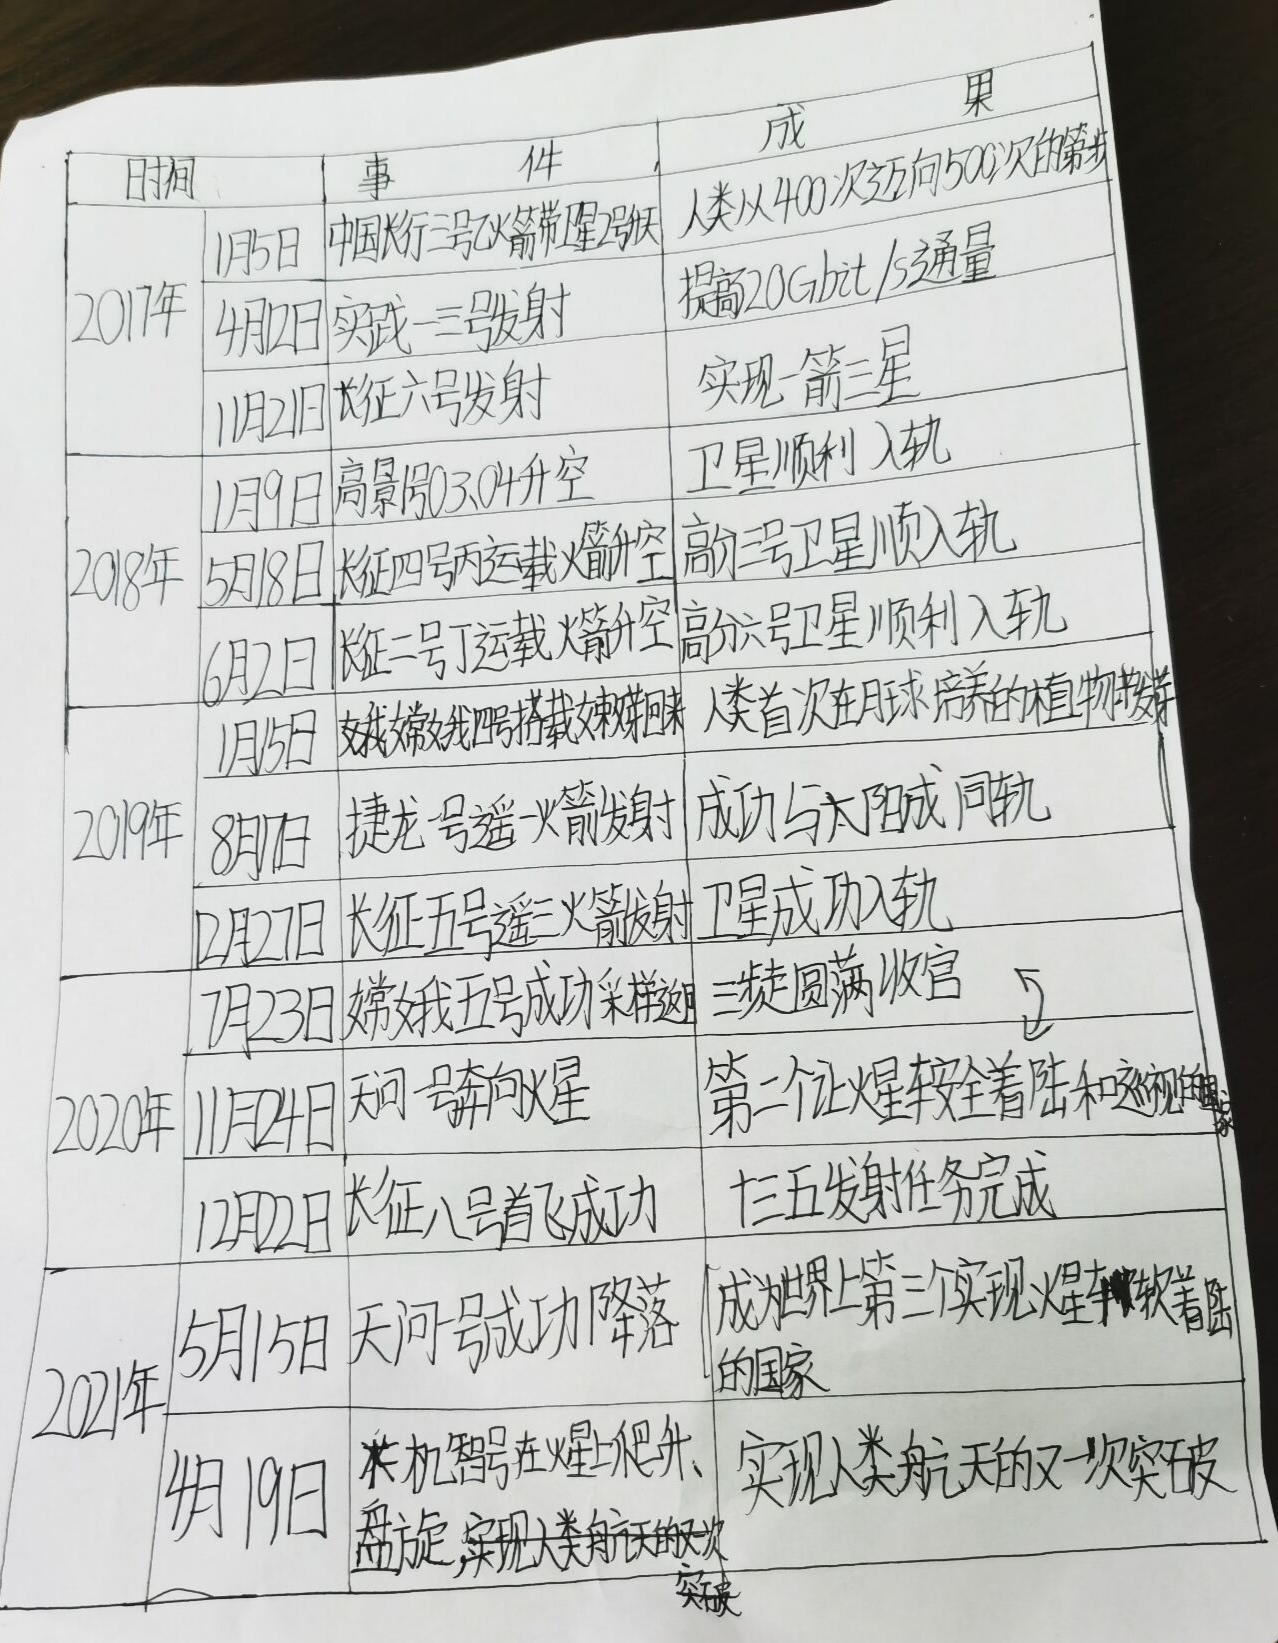 时间 事件 成果
2017年
1月5日 中国长行三号乙火箭带卫星2号 人类从400次迈向500次的第
4月12日 实践一三号发射 提高20Gbit/s通量
11月21日 长征六号发射 实现一箭三星
2018年
1月9日 高景1号03.04升空 卫星顺利入轨
5月18日 长征四号丙运载火箭升空 高分三号卫星顺入轨
6月2日 长征二号丁运载火箭升空 高分六号卫星顺利入轨
2019年
1月15日 嫦娥四号搭载 人类首次在月球培养的植物
8月17日 捷龙一号遥一火箭发射 成功与太阳成同轨
12月27日 长征五号遥三火箭发射 卫星成功入轨
2020年
7月23日 嫦娥五号成功采样返回 三步走圆满收官
11月24日 天问一号奔向火星 第二个让火星车安全着陆和巡视的国家
12月22日 长征八号首飞成功 十三五发射任务完成
2021年
5月15日 天问一号成功降落 成为世界上第三个实现火星车软着陆
的国家
4月19日 机智号在火星上爬升、 实现人类航天的又一次突破
盘旋,实现人类航天的又次
突破